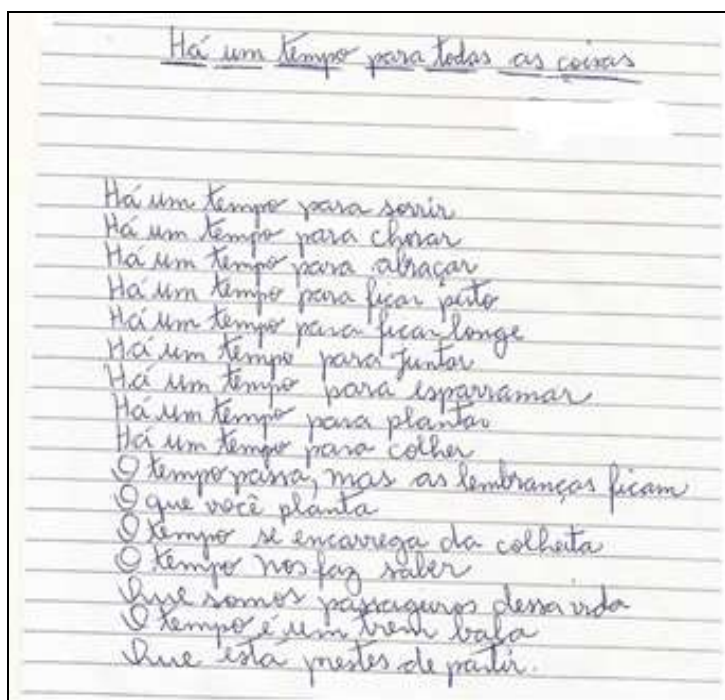 Há um tempo para todas as coisas
Há um tempo para sorrir
Há um tempo para chorar
Há um tempo para abraçar
Há um tempo para ficar perto
Há um tempo para ficar longe
Há um tempo para juntar
Há um tempo para esparramar
Há um tempo para plantar
Há um tempo para colher
O tempo passa, mas as lembranças ficam
O que você planta
O tempo se encarrega da colheita
O tempo nos faz saber
Que somos passageiros dessa vida
O tempo é um trem bala
Que está prestes de partir.